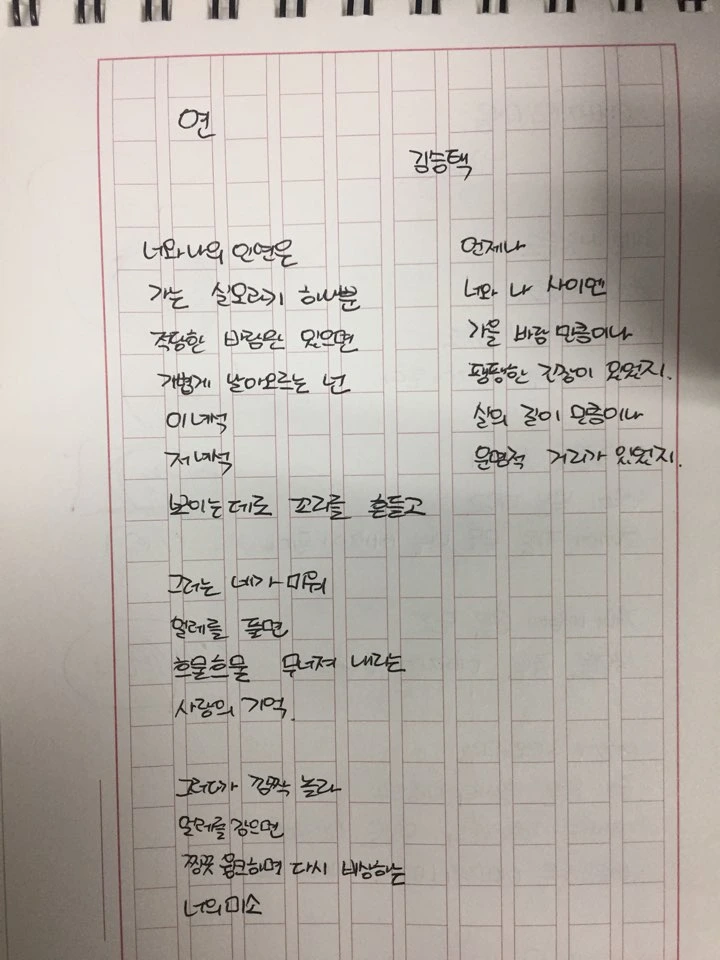 연
김승택
너와 나의 인연은
가는 실오라기 하나뿐
적당한 바람만 있으면
가볍게 날아오르는 넌
이 녀석
저 녀석
보이는데로 꼬리를 흔들고
그러는 네가 미워
얼레를 풀면
흐물흐물 무너져 내리는
사랑의 기억.
그러다가 깜짝 놀라
얼레를 감으면
찡끗 윙크하며 다시 비상하는
너의 미소
언제나
너와 나 사이엔
가을 바람 만큼이나
팽팽한 긴장이 있었지.
실의 길이 만큼이나
운명적 거리가 있었지.